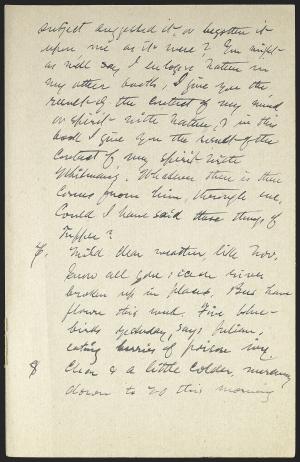 subject suggested it, or begotten it
upon me as it were? You might
as well say I enlarge nature in
my other books; I give you the
result of the contact of my mind
or spirit with nature, & in this
book I give you the result of the
contact of my spirit with
Whitman's. Whatever there is then
comes from him, through me.
Could I have said those things of
Tupper?
7. Mild clear weather, like Nov.
Snow all gone; river
broken up in places. Bees have
flown this week. Five blue-
birds yesterday, says Julian,
eating berries of poison ivy.
8 Clear & a little colder, mercury
down to 20 this morning